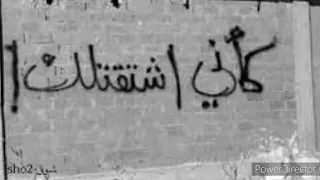 كأني اشتقتلك !
sho2-شوق
PowerDirector